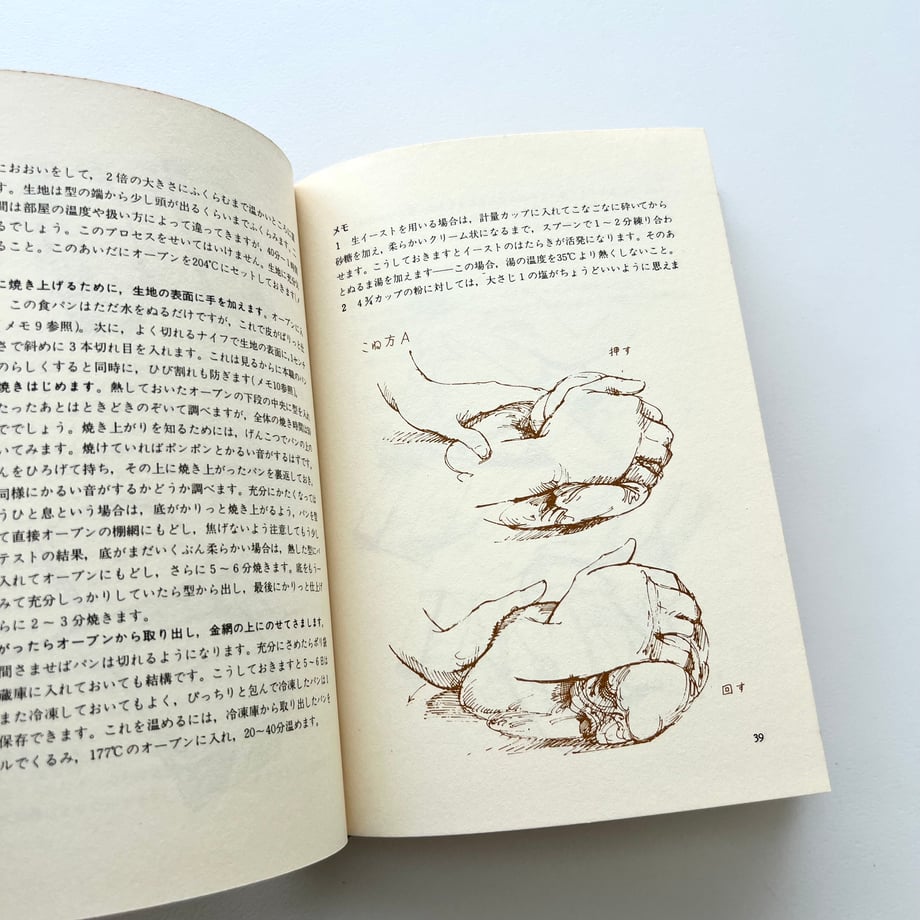 におおいをして，2倍の大きさにふくらむまで温かいところに置
す。生地は型の端から少し頭が出るくらいまでふくらみます。
間は部屋の温度や扱い方によって違ってきますが，40分〜1時間
るでしょう。このプロセスをせいてはいけません。生地に
ること。このあいだにオーブンを204℃にセットしておきます
に焼き上げるために，生地の表面に手を加えます。オーブンに
この食パンはただ水をぬるだけですが，これで皮がぱりっと
メモ9参照)。次に，よく切れるナイフで生地の表面に，1センチ
さで斜めに3本切れ目を入れます。これは見るからに本職のパン
のらしくすると同時に，ひび割れも防ぎます(メモ10参照)。
焼きはじめます。熱しておいたオーブンの下段の中央に型を入れ
たったあとはときどきのぞいて調べますが，全体の焼き時間は
でしょう。焼き上がりを知るためには，げんこつでパンの上
いてみます。焼けていればポンポンとかるい音がするはずです。
んをひろげて持ち，その上に焼き上がったパンを裏返しておき，
同様にかるい音がするかどうか調べます。充分にかたくなっては
うひと息という場合は，底がかりっと焼き上がるよう，パンを型
て直接オーブンの棚網にもどし，焦げないよう注意してもう少し
テストの結果，底がまだいくぶん柔らかい場合は，熱した型にパ
入れてオーブンにもどし，さらに5〜6分焼きます。底をもう一
みて充分しっかりしていたら型から出し，最後にかりっと仕上げ
らに2〜3分焼きます。
がったらオーブンから取り出し，金網の上にのせてさまします。
間さませばパンは切れるようになります。充分にさめたらポリ袋
蔵庫に入れておいても結構です。こうしておきますと5〜6日は
また冷凍しておいてもよく，ぴっちりと包んで冷凍したパンは1
保存できます。これを温めるには，冷凍庫から取り出したパンを
ルでくるみ，177℃のオーブンに入れ，20〜40分温めます。
メモ
1 生イーストを用いる場合は，計量カップに入れてこなごなに砕いてから
砂糖を加え，柔らかいクリーム状になるまで，スプーンで1〜2分練り合わ
せます。こうしておきますとイーストのはたらきが活発になります。そのあ
とぬるま湯を加えます——この場合，湯の温度を35℃より熱くしないこと。
2 4¾カップの粉に対しては，大さじ1の塩がちょうどいいように思えま
こね方A
押す
回す
39